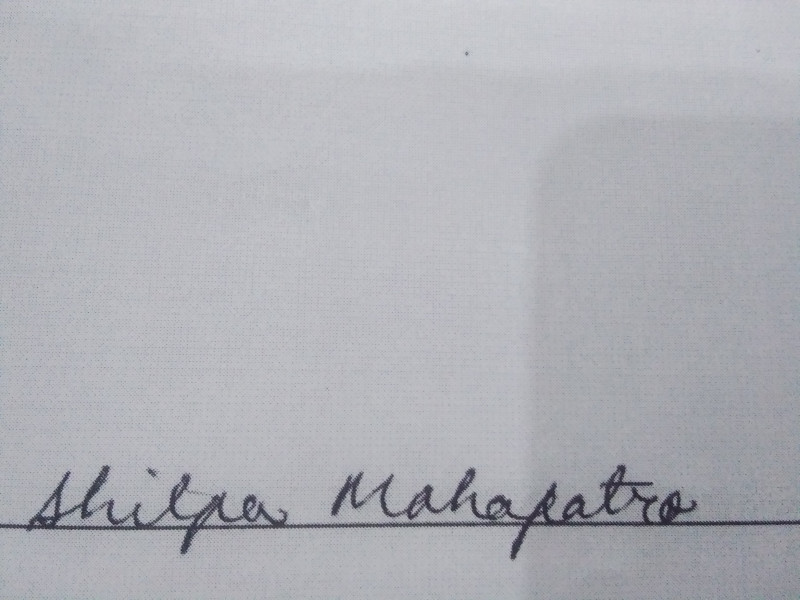 Shilpa Mahapatro